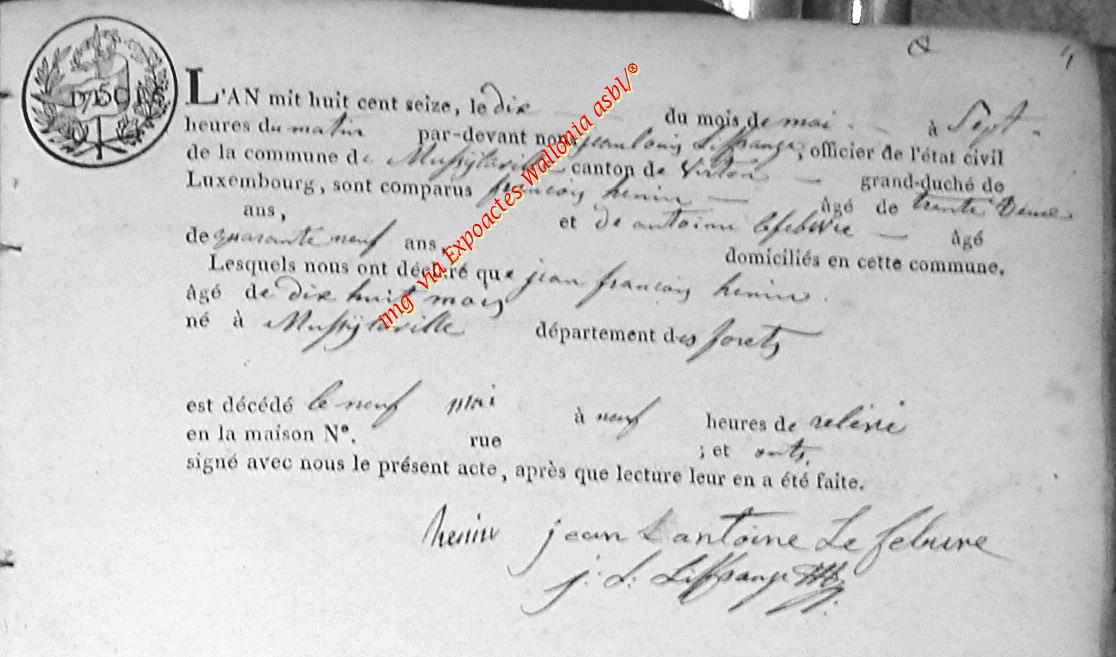 L'AN mil huit cent seize, le dix du mois de mai à Sept
heures du matin par-devant nous jean louis Liffrange, officier de l'état civil
de la commune de Mussylaville canton de Virton grand-duché de
Luxembourg, sont comparus françois henin âgé de trente Deux
ans, et de antoine lefebvre âgé
de quarante neuf ans, domiciliés en cette commune.
Lesquels nous ont déclaré que jean françois henin
âgé de dix huit mois
né à Mussylaville département des forets
est décédé le neuf mai à neuf heures de
en la maison N°. rue ; et onts
signé avec nous le présent acte, après que lecture leur en a été faite.
henin jean antoine Lefebvre
j. L. Liffrange
img via Expoactes-Wallonia asbl/®